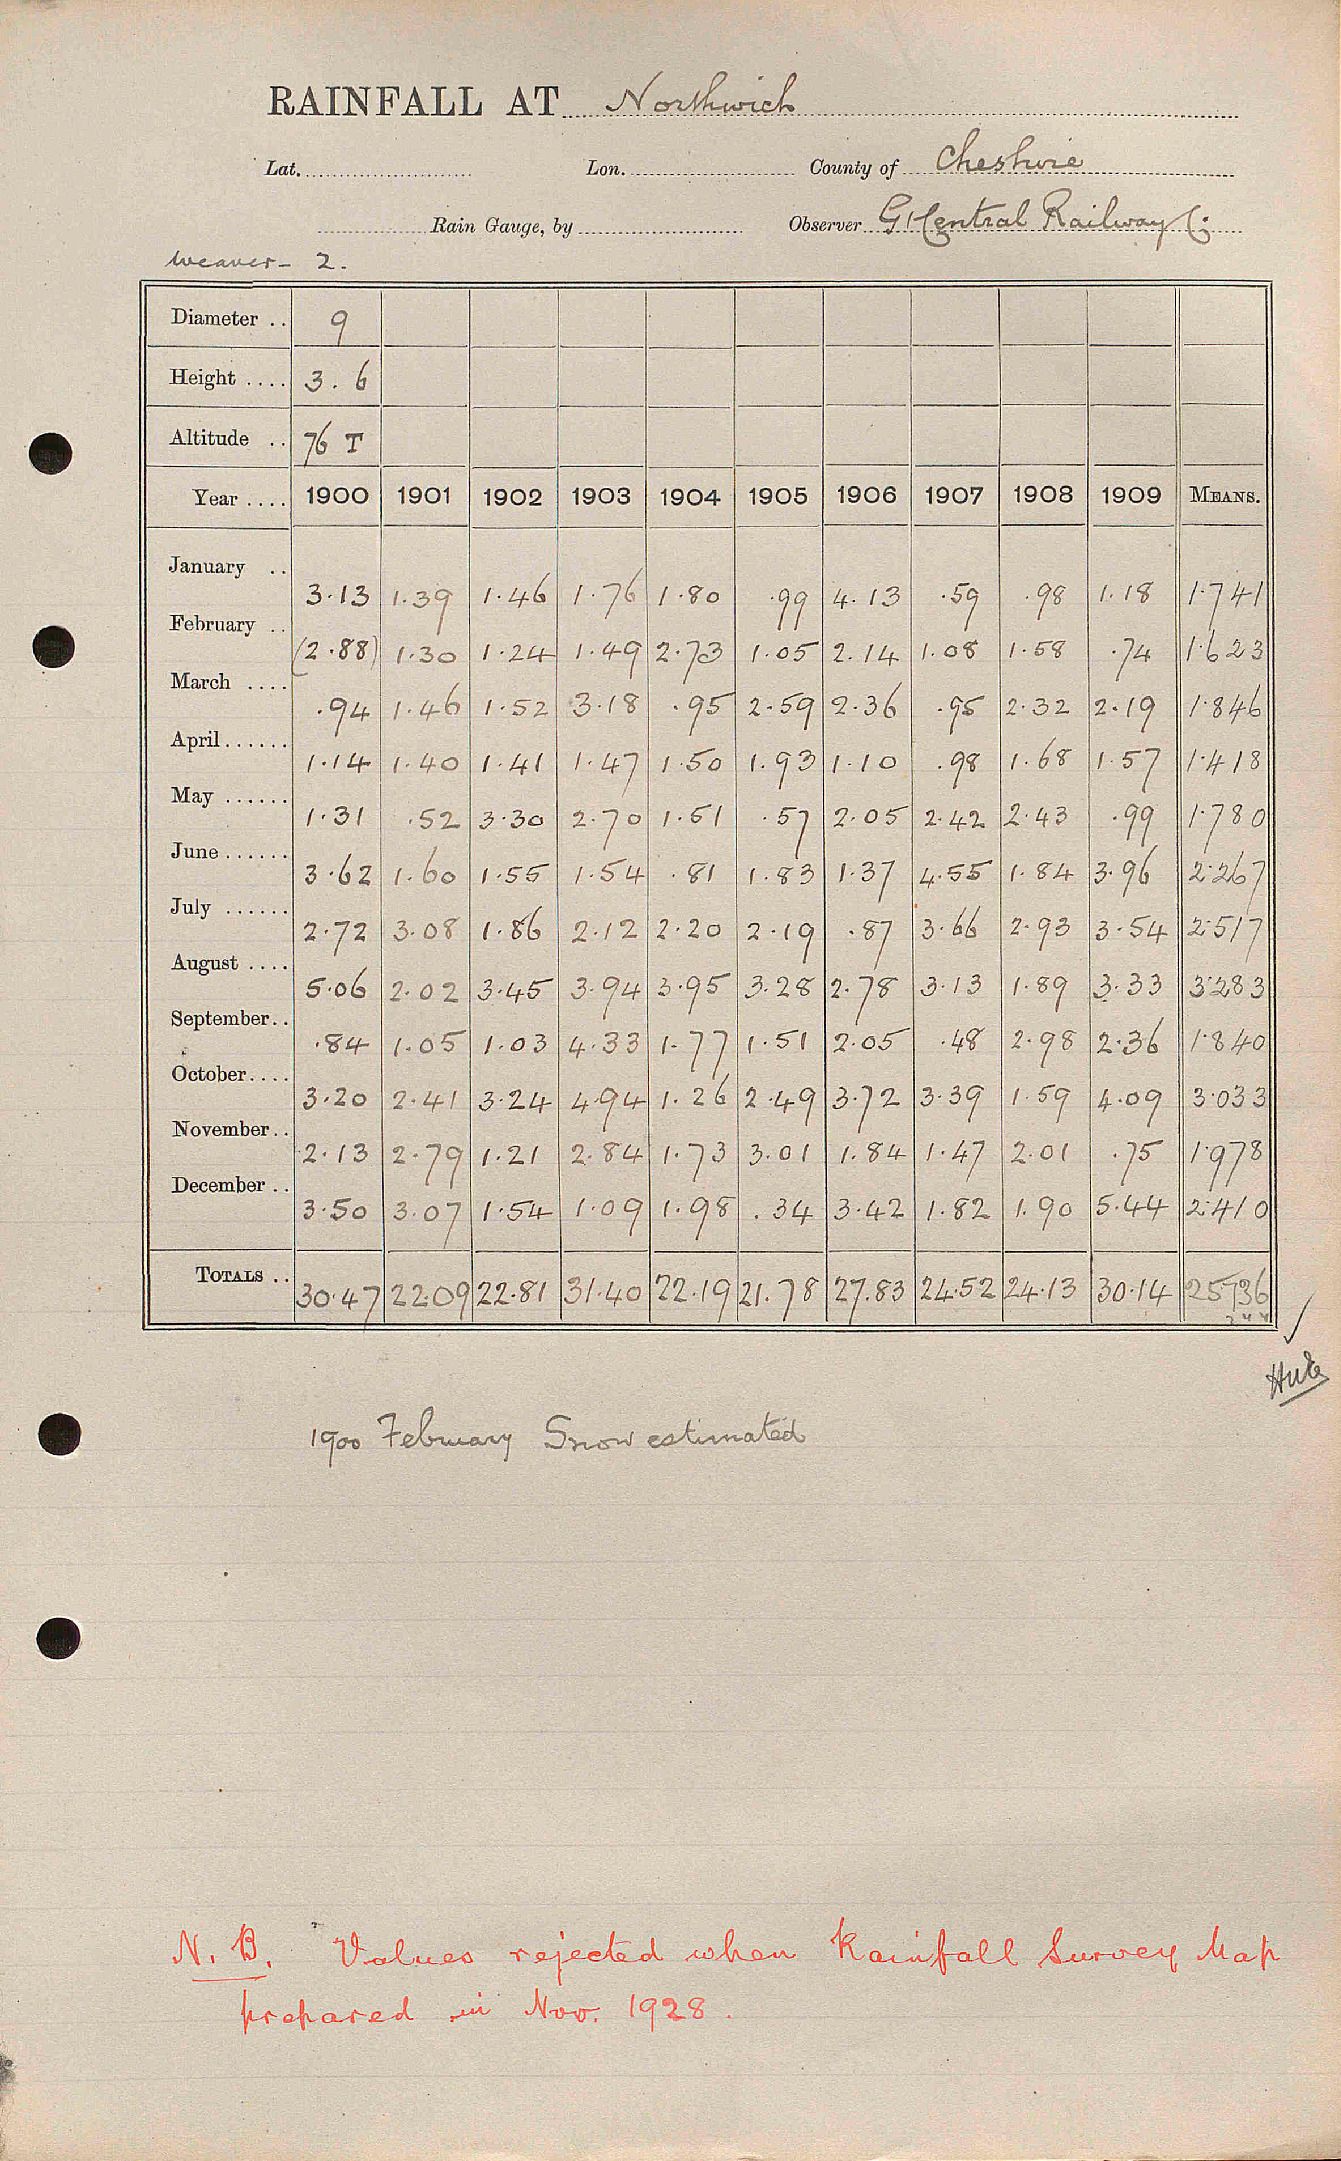 RAINFALL AT Northwich
Lat. Lon. County of Cheshire
Rain Gauge, by Observer Gt Central Railway Co.
Weaver - 2.
Diameter .. 9
Height .... 3.6
Altitude .. 76 T
Year .... 1900 1901 1902 1903 1904 1905 1906 1907 1908 1909 MEANS.
January .. 3.13 1.39 1.46 1.76 1.80 .99 4.13 .59 .98 1.18 1.741
February .. (2.88) 1.30 1.24 1.49 2.73 1.05 2.14 1.08 1.58 .74 1.623
March .... .94 1.46 1.52 3.18 .95 2.59 2.36 .95 2.32 2.19 1.846
April...... 1.14 1.40 1.41 1.47 1.50 1.93 1.10 .98 1.68 1.57 1.418
May ...... 1.31 .52 3.30 2.70 1.51 .57 2.05 2.42 2.43 .99 1.780
June...... 3.62 1.60 1.55 1.54 .81 1.83 1.37 4.55 1.84 3.96 2.267
July ...... 2.72 3.08 1.86 2.12 2.20 2.19 .87 3.66 2.93 3.54 2.517
August .... 5.06 2.02 3.45 3.94 3.95 3.28 2.78 3.13 1.89 3.33 3.283
September.. .84 1.05 1.03 4.33 1.77 1.51 2.05 .48 2.98 2.36 1.840
October.... 3.20 2.41 3.24 4.94 1.26 2.49 3.72 3.39 1.59 4.09 3.033
November.. 2.13 2.79 1.21 2.84 1.73 3.01 1.84 1.47 2.01 .75 1.978
December .. 3.50 3.07 1.54 1.09 1.98 .34 3.42 1.82 1.90 5.44 2.410
TOTALS .. 30.47 22.09 22.81 31.40 22.19 21.78 27.83 24.52 24.13 30.14 25.736
1900 February Snow estimated
N.B. Values rejected when Rainfall Survey Map
prepared in Nov. 1928.